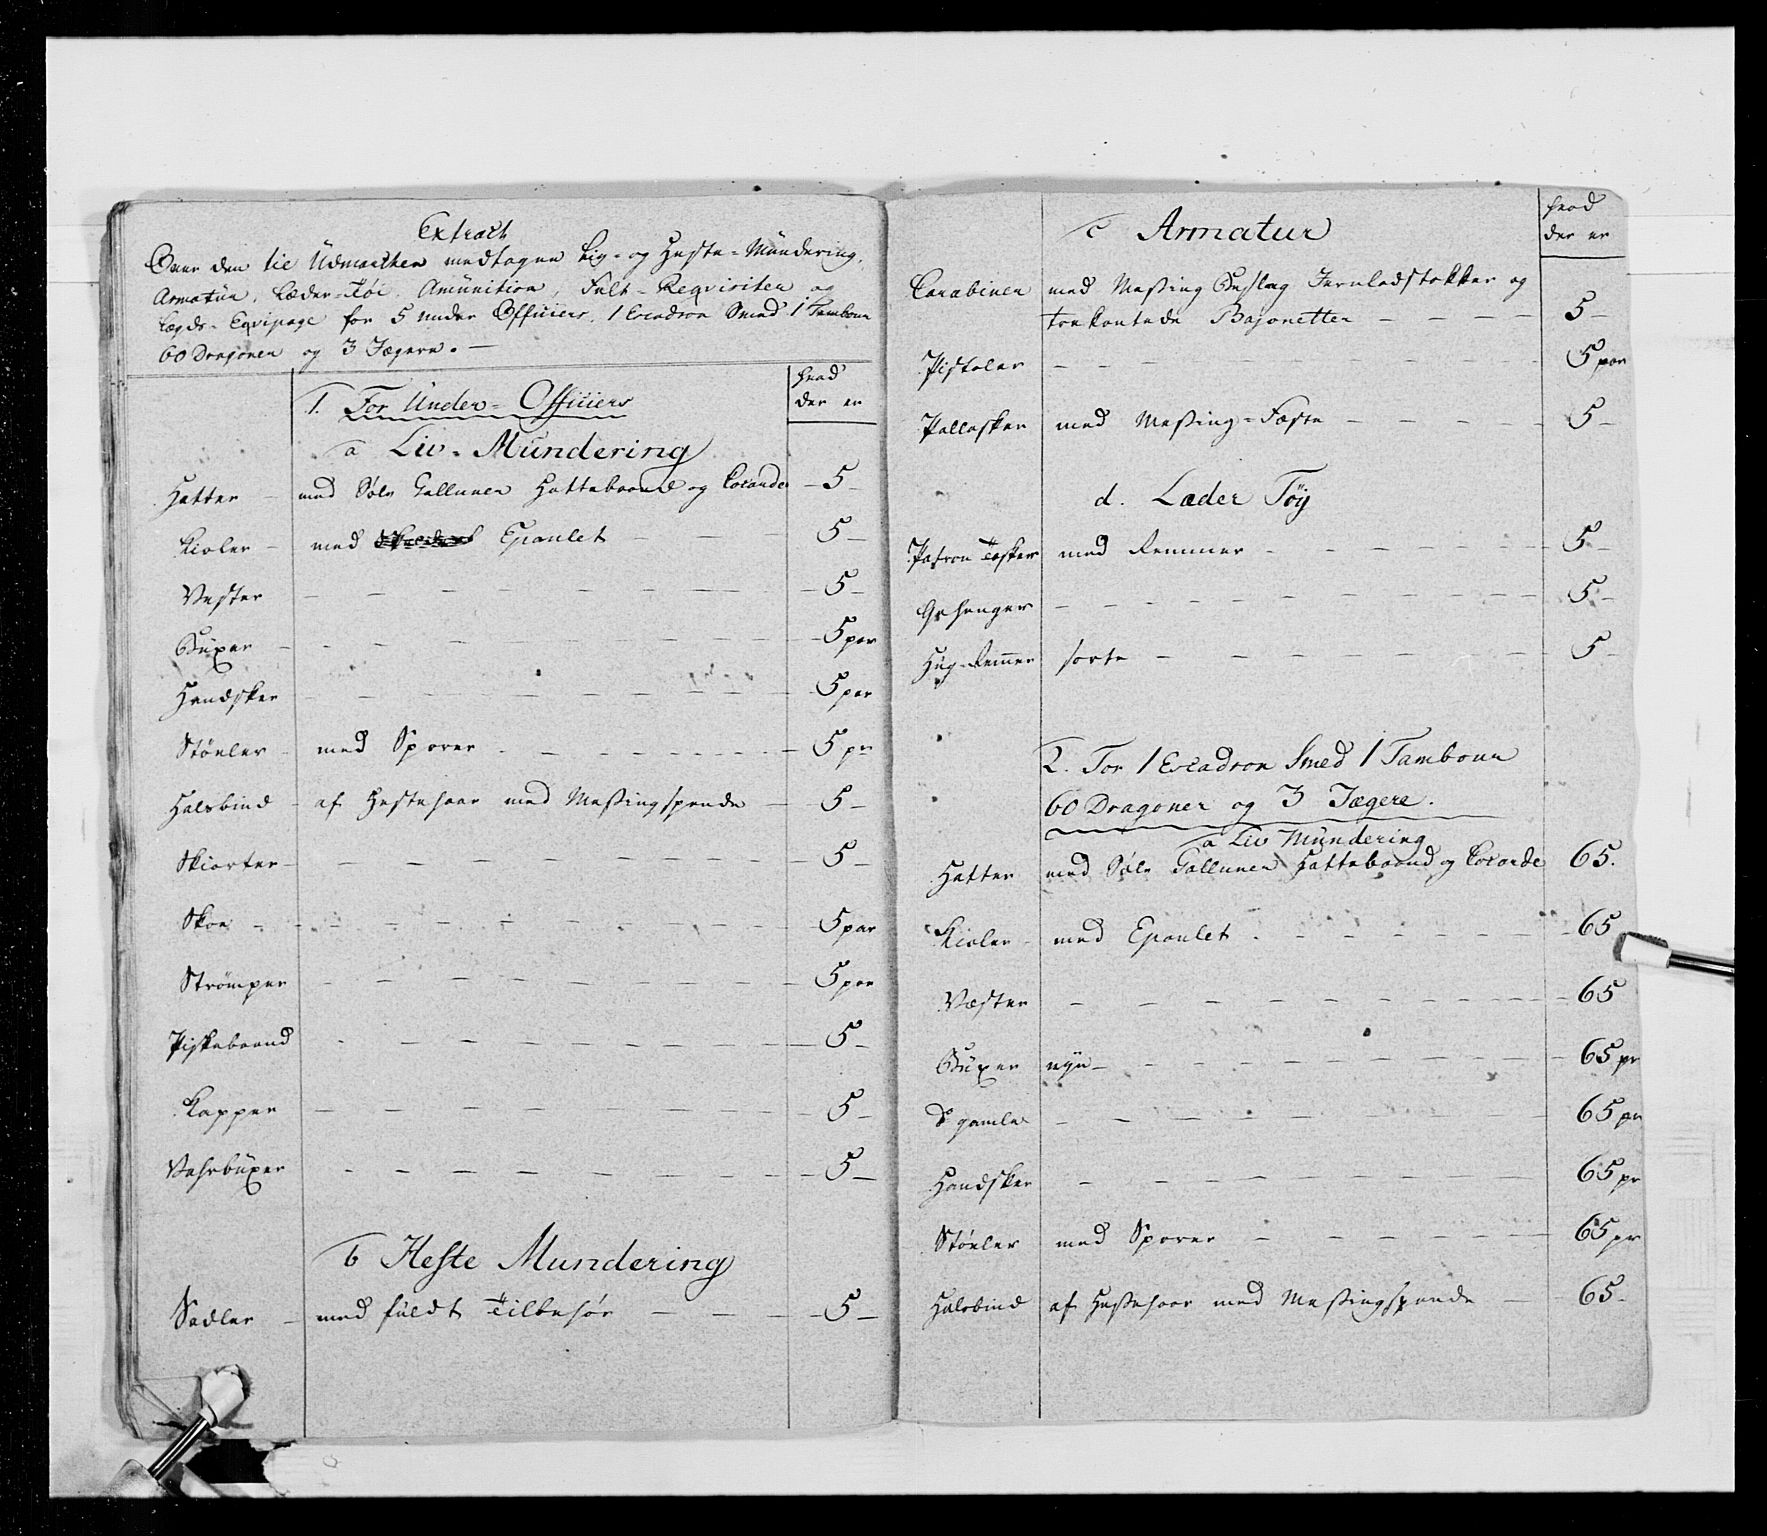 Extract
Over den til Udmarchen medtagen Liv- og Heste-Mundering,
Armatur, Læder-Töi, Amunition, Felt-Reqvisiter og
Legds-Eqvipage for 5 under Officiers, 1 Escadron Smed 1 Tambour
60 Dragoner og 3 Jægere. —
hvad
der er
1. For Under-Officiers
a Liv-Mundering
Hatter — med Sölv Galluner Hattebaand og Cocarde — 5 —
Kioler — med Epaulet — — — 5 —
Vester — — — — 5 —
Buxer — — — — 5 par
Handsker — — — — 5 par
Stövler — med Sporer — — — 5 pr
Halsbind — af Hestehaar med Messingspende — 5 —
Skiorter — — — — 5 —
Skoe — — — — 5 par
Strömper — — — — 5 par
Piskebaand — — — — 5 —
Kapper — — — — 5 —
Vahrbüxer — — — — 5 —
b Heste Mundering
Sadler — med fuldt Tilbehör — — — 5 —
hvad
der er
c Armatur
Carabiner med Messing Beslag Jernladstokker og
trekantede Bajonetter — — — — 5 —
Pistoler — — — — 5 par
Pallasker med Messing-Fæste — — — — 5 —
d. Læder Töy
Patron Tasker med Remmer — — — — 5 —
Gehenger — — — — 5 —
Hug-Remer sorte — — — — 5 —
2. For 1 Escadron Smed 1 Tambour
60 Dragoner og 3 Jægere.
a Liv Mundering
Hatter med Sölv Galluner Hattebaand og Cocarde 65.
Kioler — med Epaulet — — — 65
Væster — — — — 65
Buxer nye — — — — 65 pr
Do gamle — — — — 65 pr
Handsker — — — — 65 pr
Stövler med Sporer — — — — 65 pr
Halsbind af Hestehaar med Messingspende — 65 —